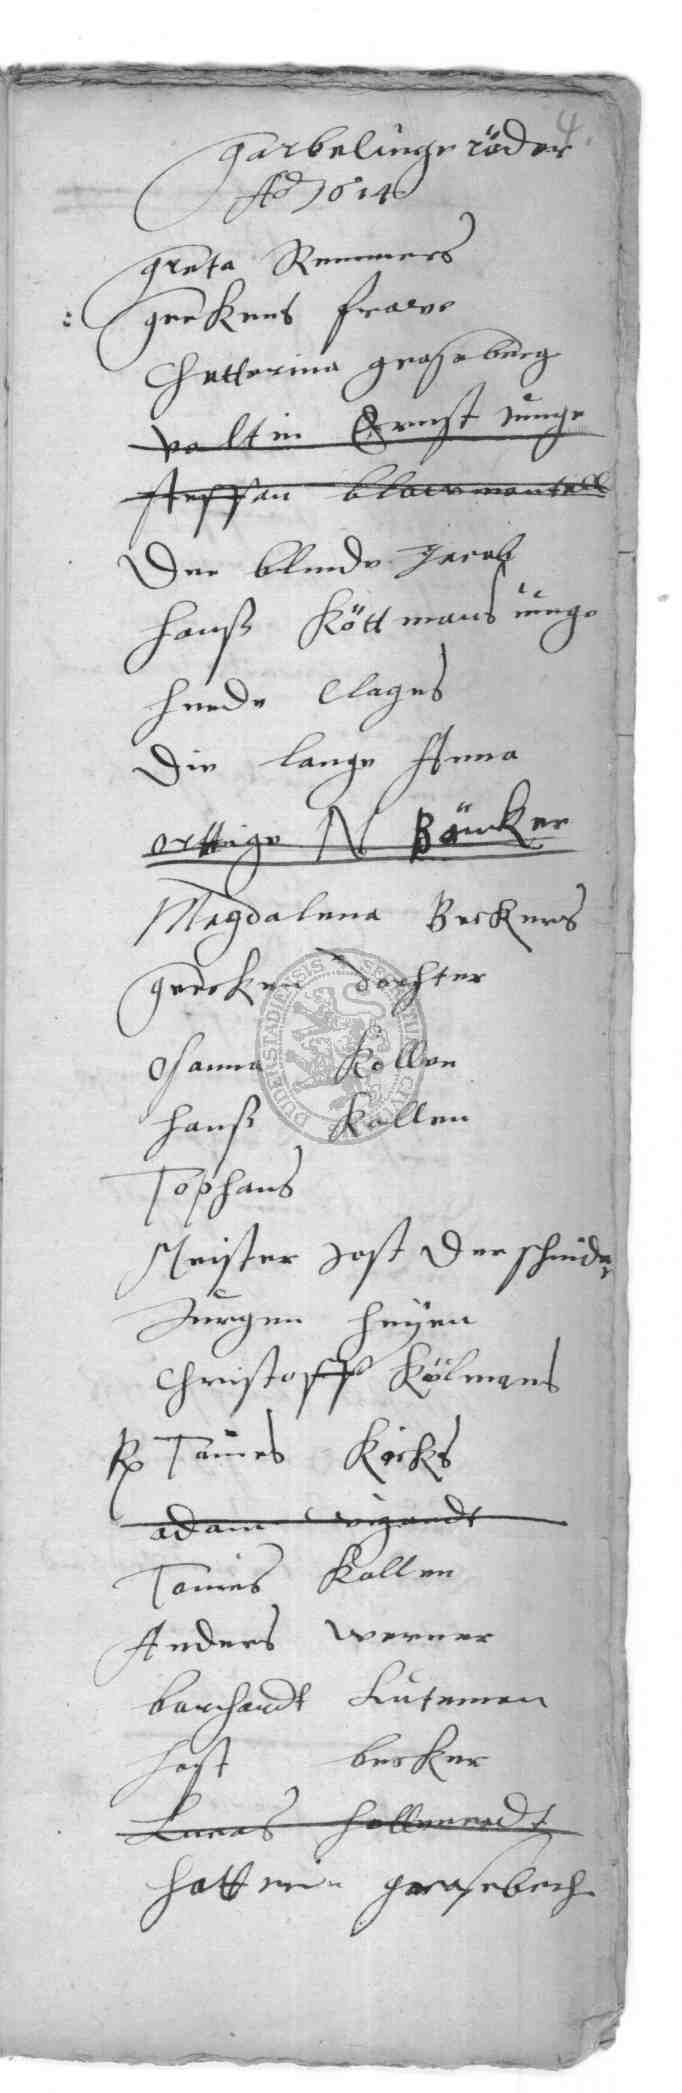 4.
garbelinge röder
Ao 1614
greta Remmers
gerkens frawe
Chatterina graseburg
valtin Ernst Junge
steffan blawmantell
Der blinde Jacob
hanß Köttmans iunge
Clages
Die lange Anna
N Bäncker
Magdalena Beckers
gercken dochter
osanna Kollen
hanß Kollen
Tophans
Meister Jost der schnider
Jurgen heyen
Christoff Kölmans
Tönies Kicks
adam wigandt
Tonies Kollen
Anders werner
borchardt Lutemen
Jost becker
Lucas hollenradt